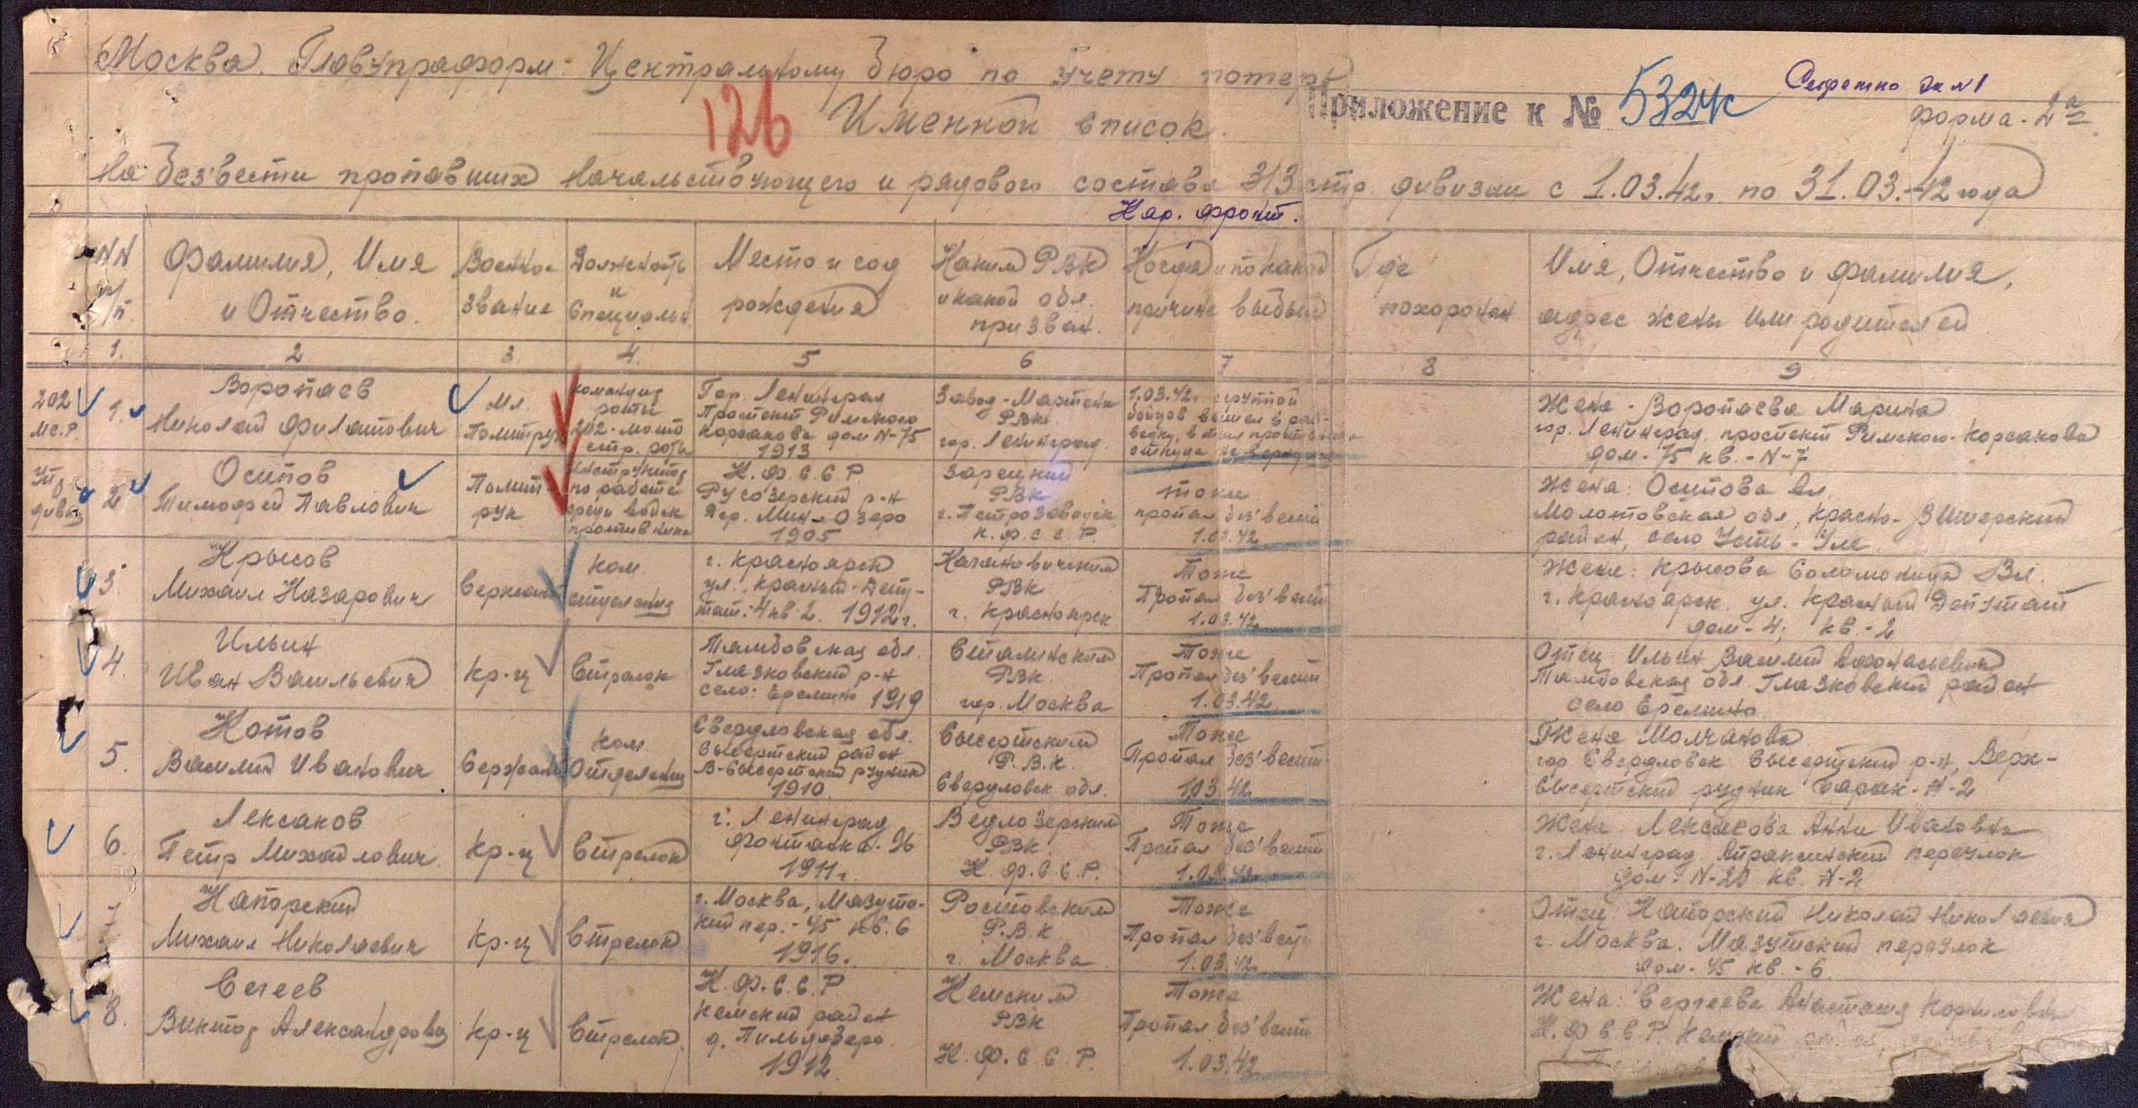 Москва. Главупраформ. Центральному бюро по учету потерь
Секретно экз №1
126
Именной список.
Приложение к № 5324с
Форма - 2а
на без'вести пропавших начальствующего и рядового состава 313 стр. дивизии с 1.03.42г. по 31.03.42 года
Кар. фронт.
NN п/п
Фамилия, Имя и Отчество.
Военное звание
Должность и специальн
Место и год рождения
Каким РВК и какой обл. призван.
Когда и по какой причине выбыл
Где похоронен
Имя, Отчество и фамилия, адрес жены или родителей
1. 2 3. 4. 5 6 7 8 9
202 мс.р.
1.
Воропаев
Николай Филатович
Мл. Политрук
командир роты
202 - мото стр. роты
Гор. Ленинград
Проспект Римского
Корсакова дом N-75
1913
РВК
гор. Ленинград.
1.03.42г.
Жена - Воропаева Марина
гор. Ленинград проспект Римского-Корсакова
дом - 75 кв. - N-7
2
Осипов
Тимофей Павлович
Полит-
рук
Инструктор
по работе
среди войск
противника
К.Ф.С.С.Р
Ругозерский р-н
1905
Зарецким
РВК
г. Петрозаводск
К.Ф.С.С.Р.
тоже
пропал без'вести
1.03.42
Жена: Осипова
Молотовская обл, Красно-Вишерский
район, село Усть-Улс
3
Крысов
Михаил Назарович
Сержант
ком.
отделения
г. Красноярск
ул. Красный-Депу-
тат. 4 кв 2. 1912г.
Кагановичским
РВК
г. Красноярск
Тоже
Пропал без'вести
1.03.42
Жена: Крысова Соломонида Вл.
г. Красноярск. ул. Красный Депутат
дом - 4. кв. - 2
4.
Ильин
Иван Васильевич
Кр-ц
Стрелок
Тамбовская обл.
Глазковский р-н
село: Еремино 1919
Сталинским
РВК.
гор. Москва
Тоже
Пропал без'вести
1.03.42.
Отец Ильин Василий Афонасьевич
Тамбовская обл. Глазковский район
село Еремино
5.
Котов
Василий Иванович
Сержант
ком
Отделения
Свердловская обл.
Сысертский район
В-Сысертский рудник
1910.
Сысертским
Р.В.К.
Свердловск обл.
Тоже
Пропал без'вести
1.03.42
Жена Молчанова
гор. Свердловск Сысертский р-н, Верх-
Сысертский рудник барак-N-2
6.
Лексаков
Петр Михайлович.
Кр-ц
Стрелок
г. Ленинград
Фонтанка-
1911г.
Ведлозерским
РВК
К.Ф.С.С.Р.
Тоже
Пропал без'вести
1.03.42.
Жена Лексакова Анна Ивановна
г. Ленинград Апраксинский переулок
дом - N-20 кв. N-2
7
Нагорский
Михаил Николаевич
Кр-ц
Стрелок
г. Москва, Мазутс-
кий пер. - 45 кв. 6
1916.
Ростовским
Р.В.К
г. Москва
Тоже
Пропал без'вести
1.03.42.
Отец: Нагорский Николай Николаевич
г. Москва. Мазутский переулок
дом - 45 кв. - 6
8.
Сергеев
Виктор Александрович
Кр-ц
Стрелок.
К.Ф.С.С.Р
Кемский район
1912.
Кемским
РВК
К.Ф.С.С.Р.
Тоже
Пропал без'вести
1.03.42
Жена: Сергеева Анастасия Корниловна
К.Ф.С.С.Р. Кемский